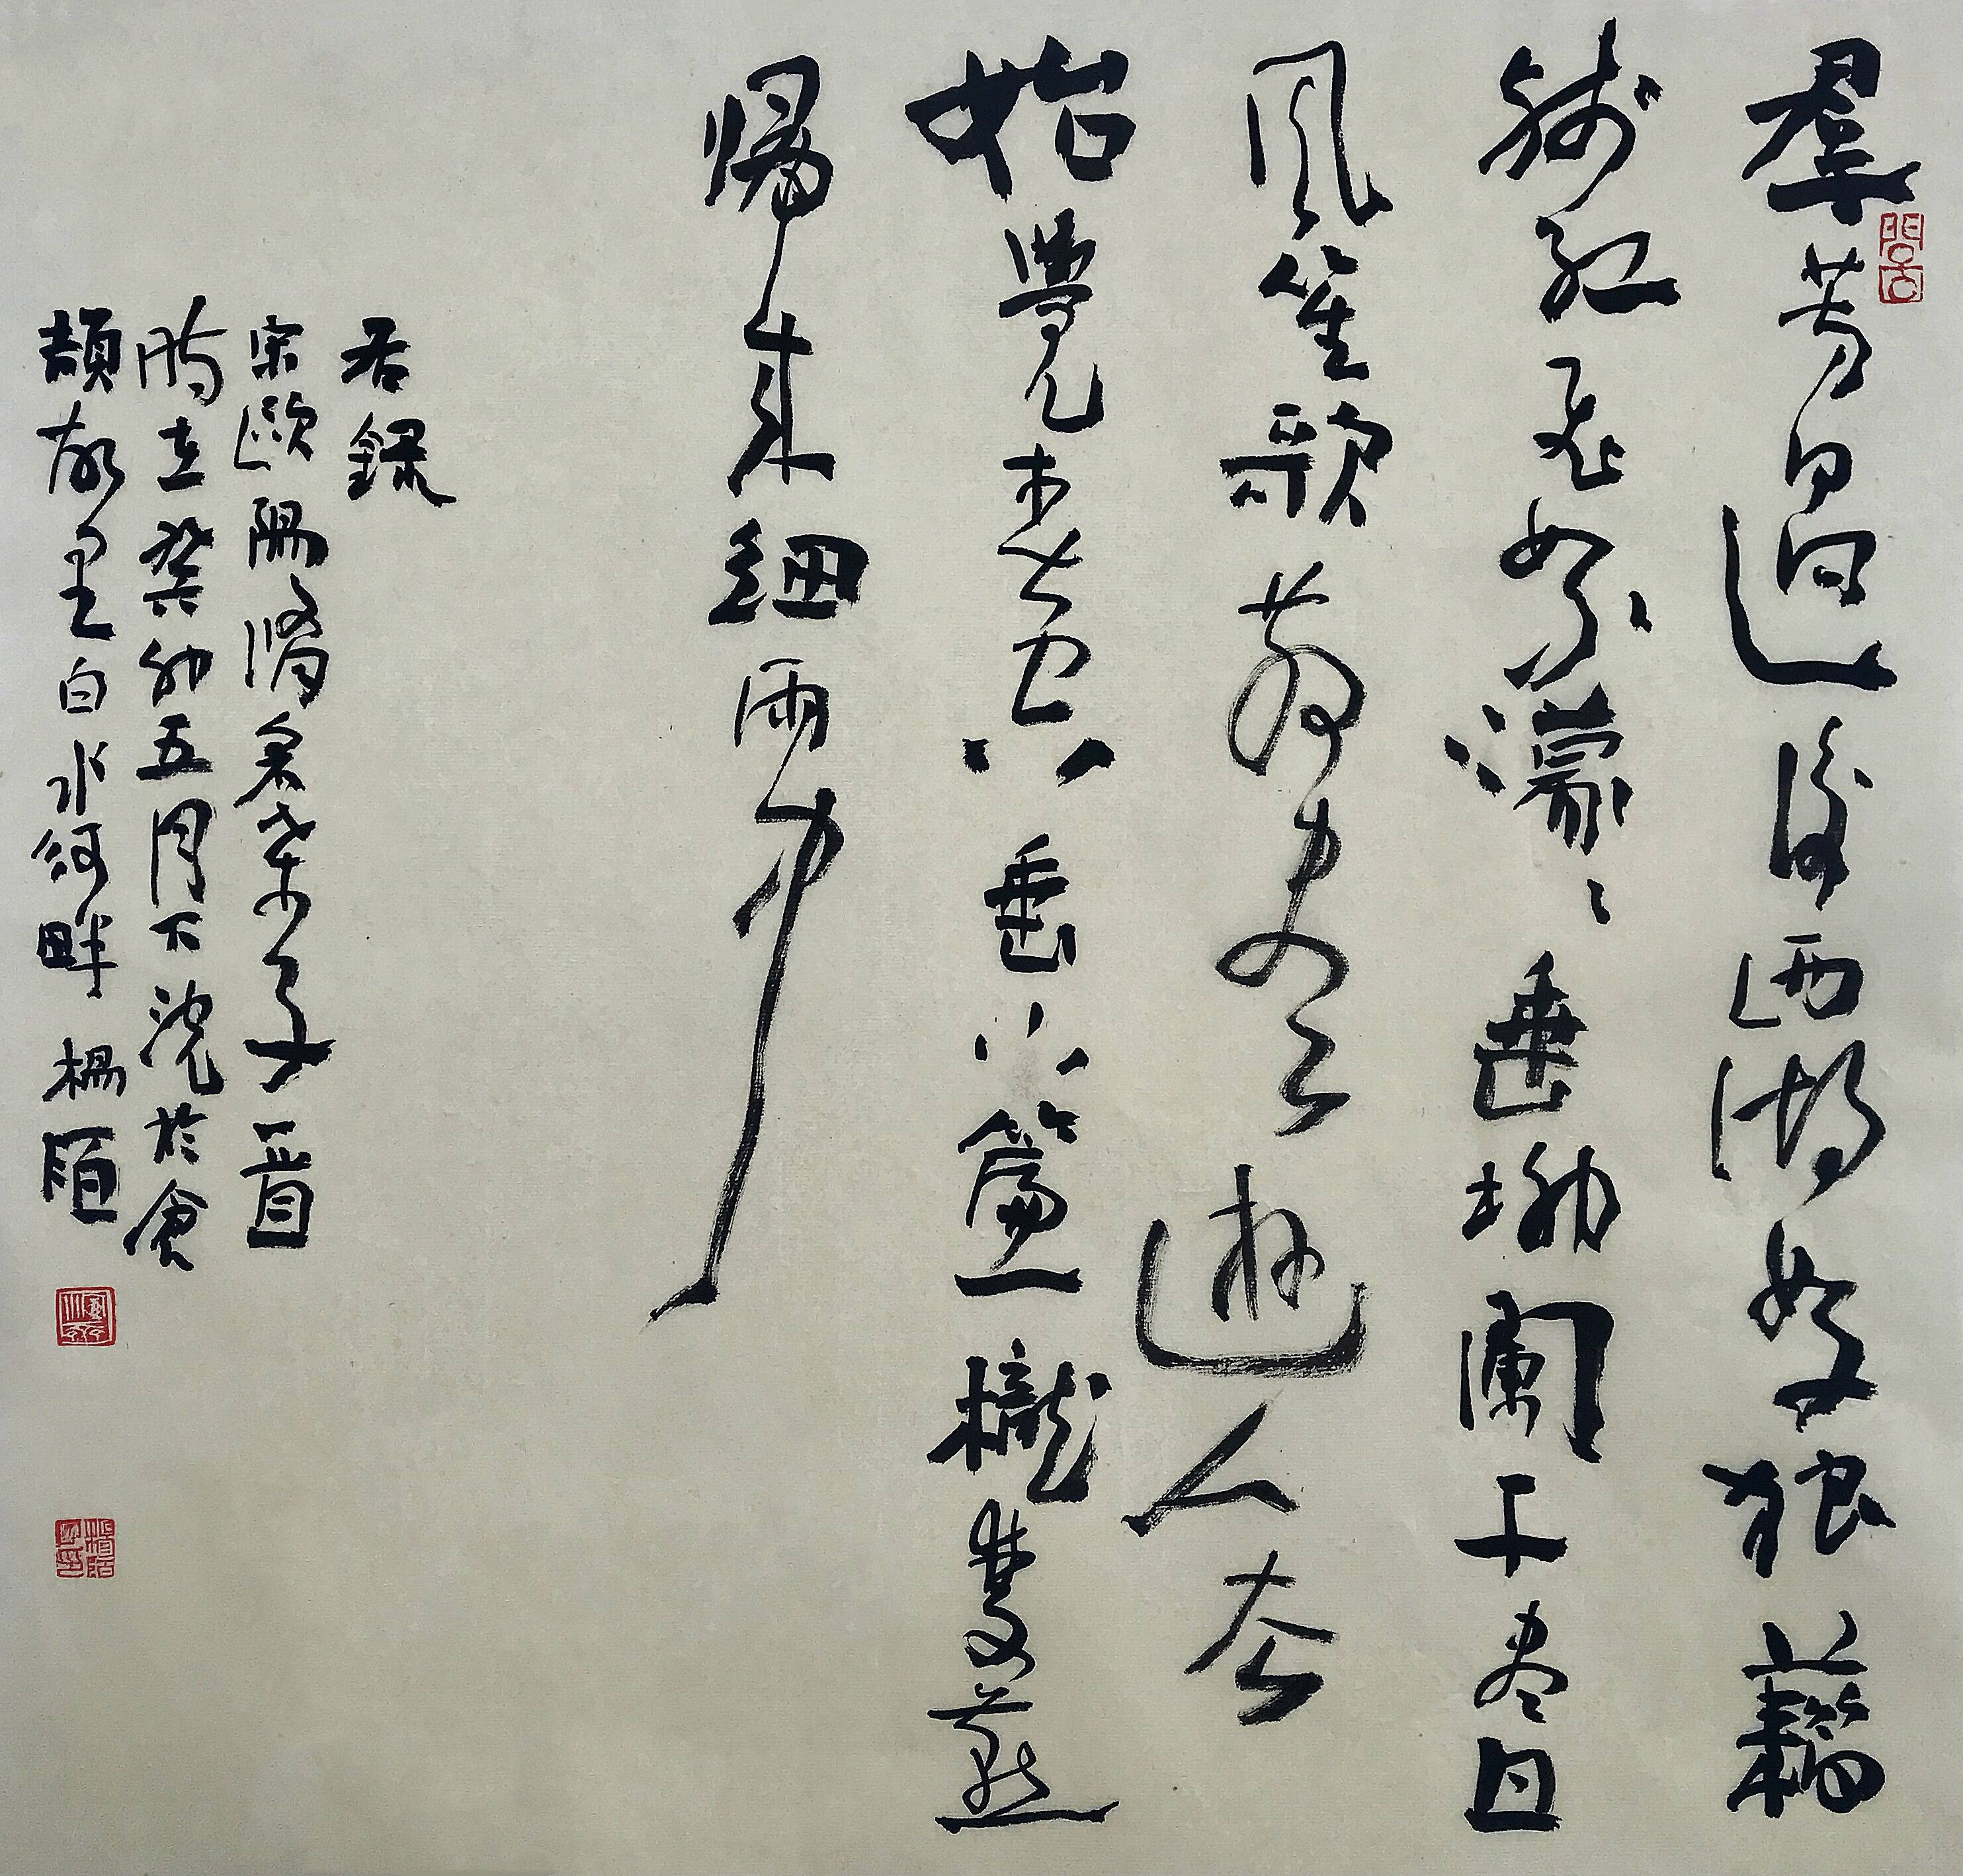 羣芳過後西湖好狼藉
殘紅飛絮濛〻垂柳闌干盡日
風笙歌散盡遊人去
始覺春空垂下簾櫳雙燕
歸來細雨中
右錄
宋歐陽脩采桑子一首
時在癸卯五月下浣於倉
頡故里白水河畔 楊陌